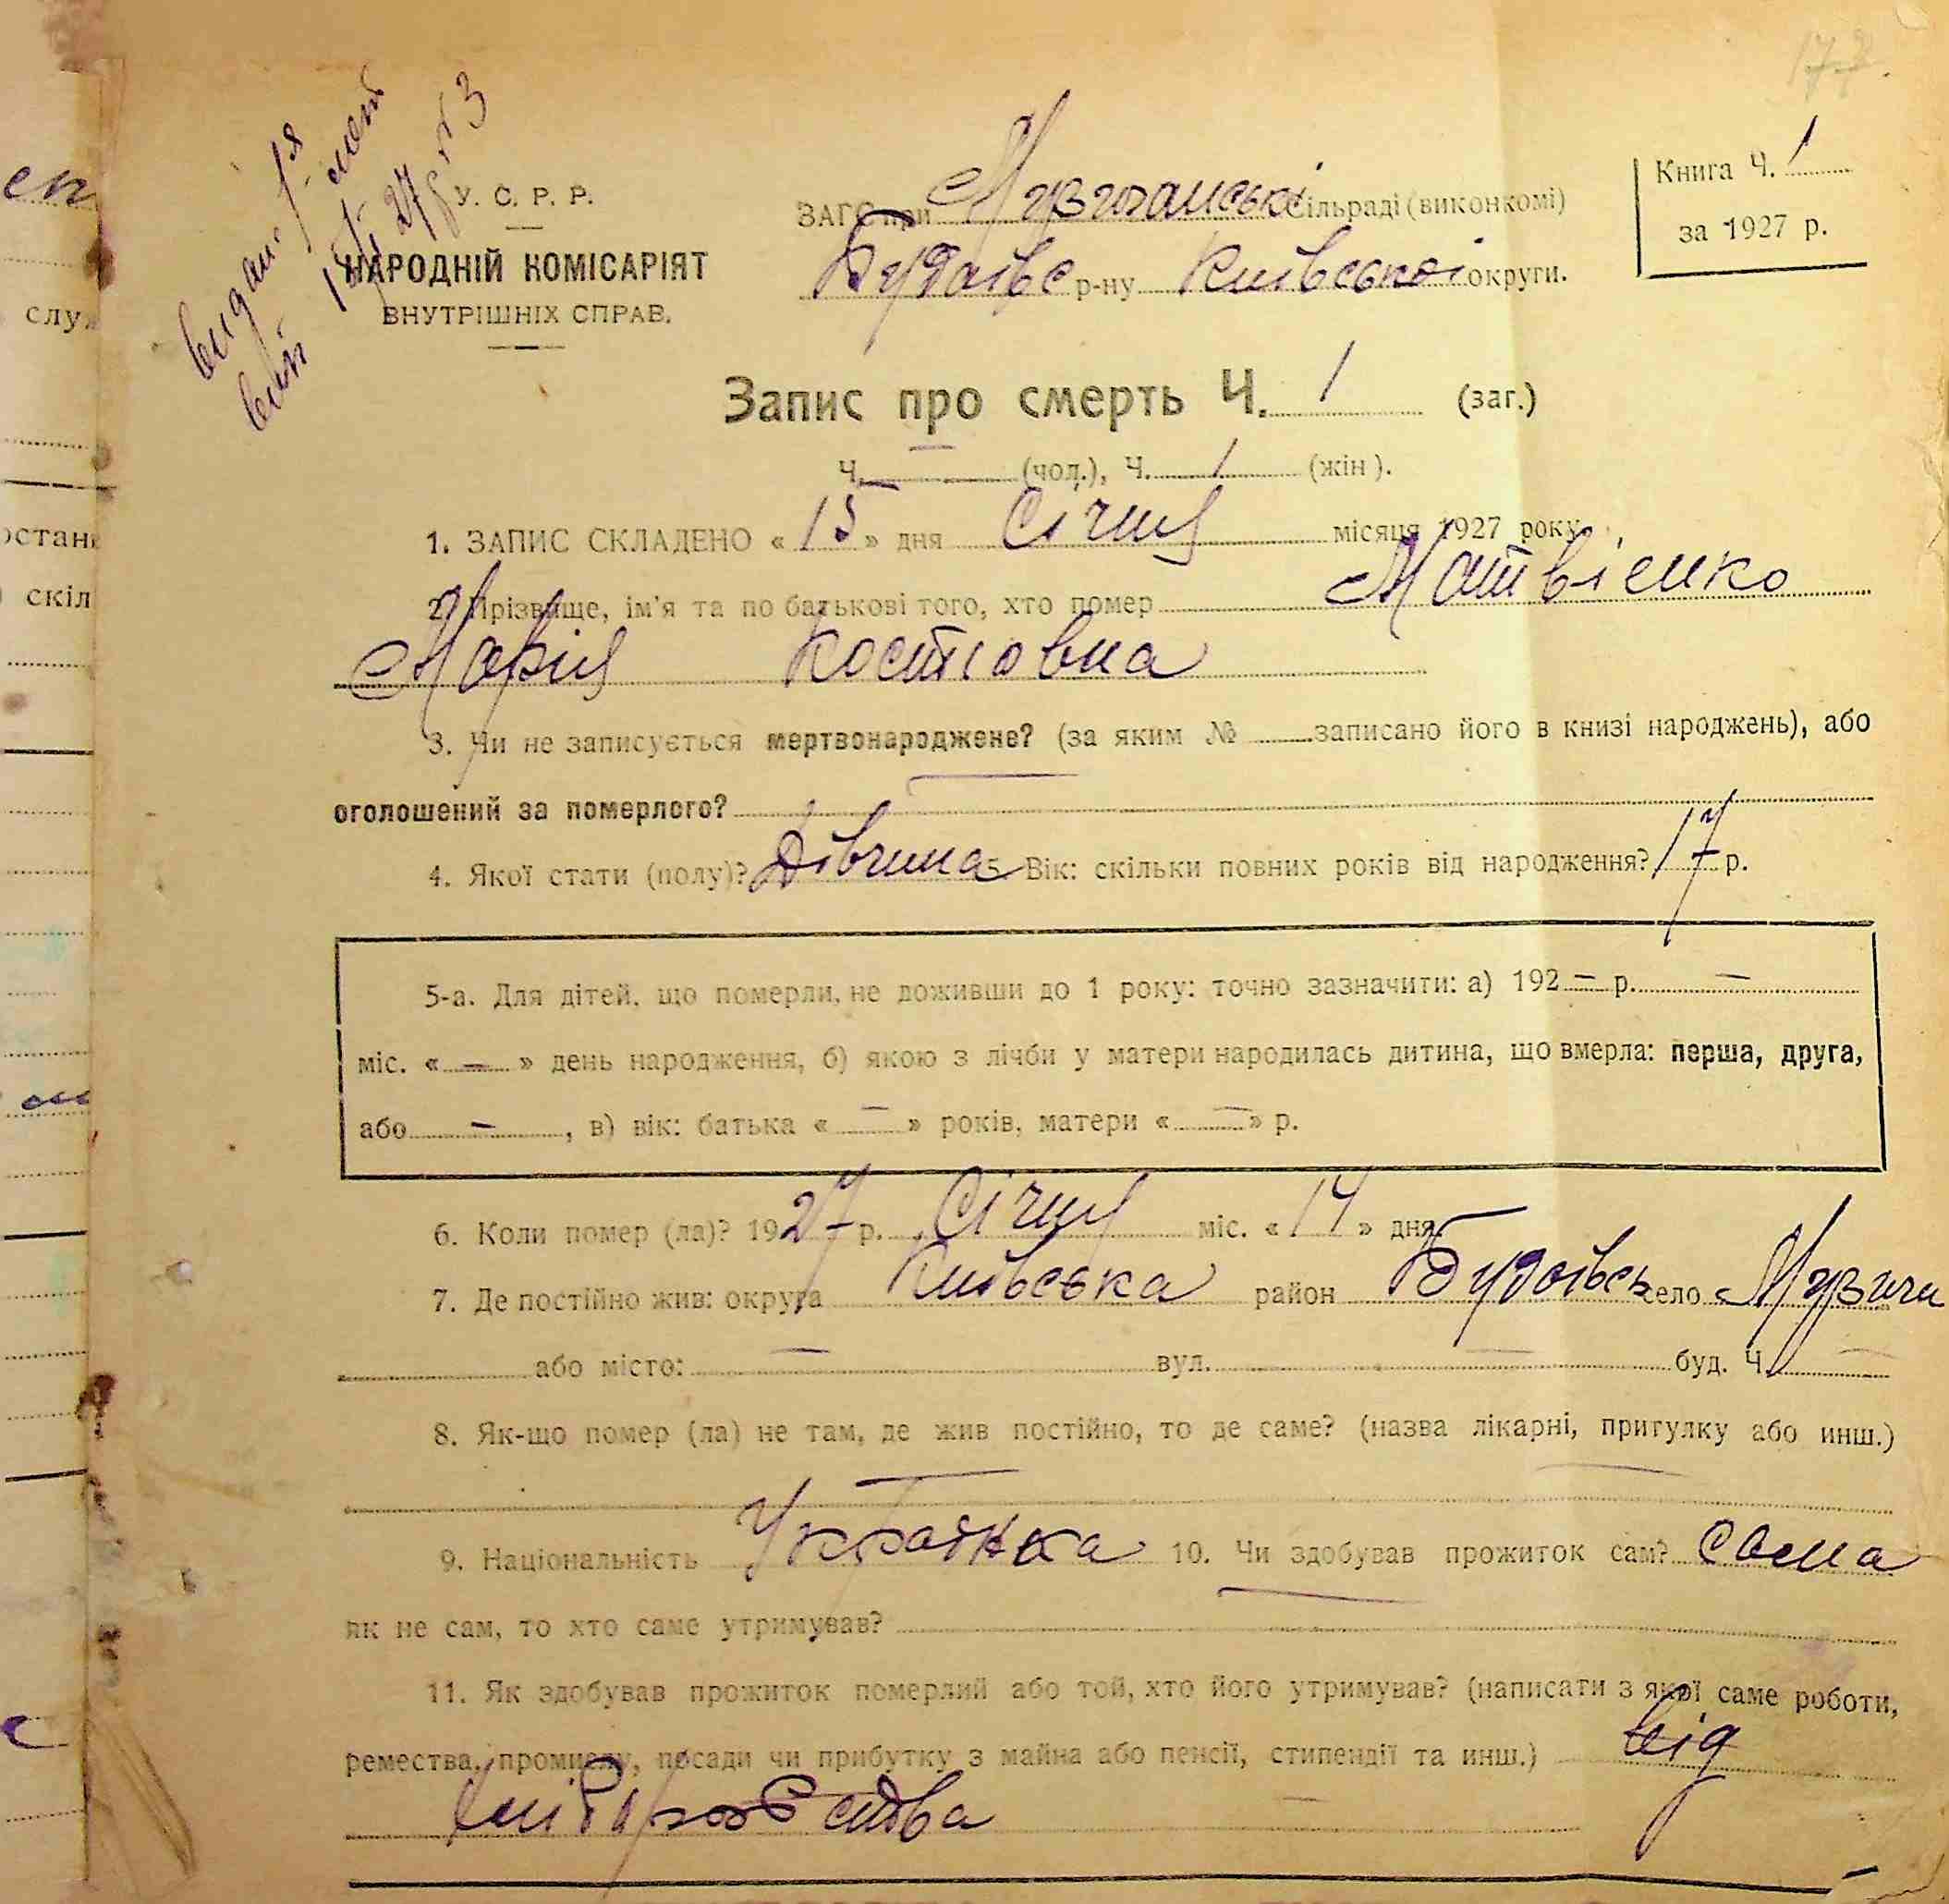 177.
видана 1-я
У. С. Р. Р.
НАРОДНІЙ КОМІСАРІЯТ
ВНУТРІШНІХ СПРАВ.
ЗАГС при Музичанські сільраді (виконкомі)
Будаївс р-ну Київської округи.
Книга Ч. 1
за 1927 р.
Запис про смерть Ч. 1 (заг.)
Ч. — (чол.), Ч. 1 (жін).
1. ЗАПИС СКЛАДЕНО « 15 » дня Січня місяця 1927 року.
2. Прізвище, ім'я та по батькові того, хто помер Матвієнко
Марія Костіовна
3. Чи не записується мертвонароджене? (за яким № записано його в книзі народжень), або
оголошений за померлого? —
4. Якої стати (полу)? Дівчина 5. Вік: скільки повних років від народження? 17 р.
5-а. Для дітей, що померли, не доживши до 1 року: точно зазначити: а) 192 — р. —
міс. « — » день народження, б) якою з лічби у матери народилась дитина, що вмерла: перша, друга,
або — , в) вік: батька « — » років, матери « — » р.
6. Коли помер (ла)? 1927 р. Січня міс. « 14 » дня
7. Де постійно жив: округа Київська район Будаївськ село Музичи
або місто: — вул. — буд. Ч. —
8. Як-що помер (ла) не там, де жив постійно, то де саме? (назва лікарні, пригулку або инш.)
—
9. Національність Українка 10. Чи здобував прожиток сам? сама
як не сам, то хто саме утримував? —
11. Як здобував прожиток померлий або той, хто його утримував? (написати з якої саме роботи,
ремества, промислу, посади чи прибутку з майна або пенсії, стипендії та инш.) від
хліборобства